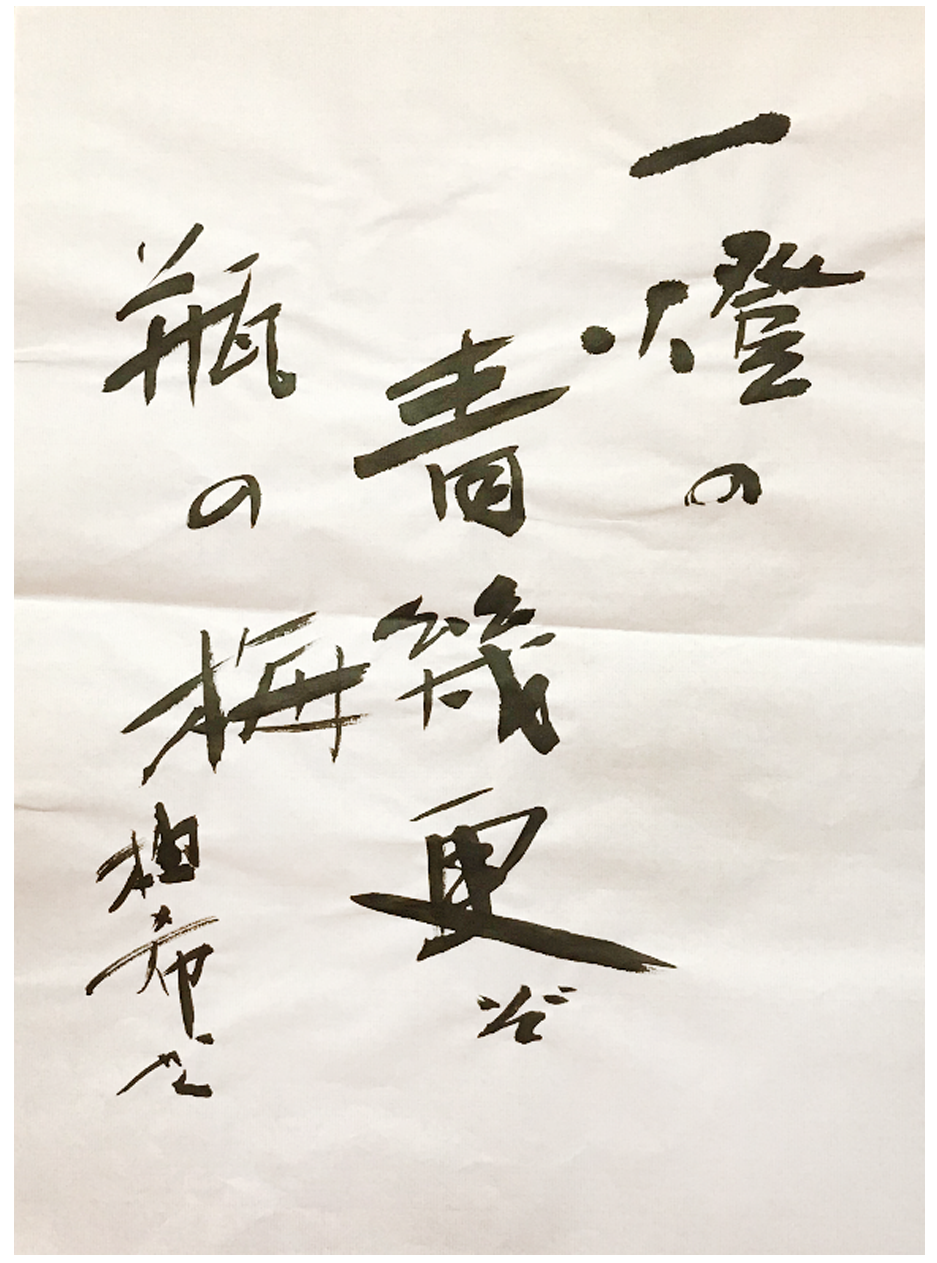 一燈の
青幾更ぞ
瓶の梅
柚希